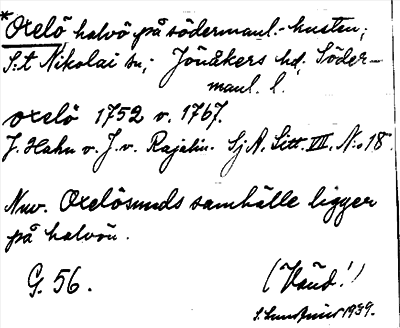 *Oxelö halvö på södermanl.-kusten;
S:t Nikolai sn; Jönåkers hd. Söder-
manl. l.
oxelö 1752 v. 1767.
J. Hahn v. J. v. Rajalin. SjA, Litt. VII, N:o 18.
Nuv. Oxelösunds samhälle ligger
på halvön.
G. 56. (Vänd!)
S. 1939.